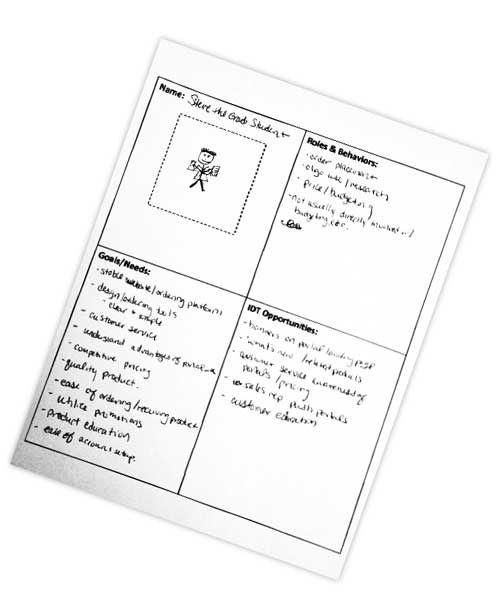 Name: Steve the Grad Student
Roles & Behaviors:
- order placement
- oligo use / research
- price/budgeting
- not usually directly involved w/
budgeting, etc.
Goals/Needs:
- stable website/ordering platform
- design/ordering tools
- clear & simple
- customer service
- understand advantages of
- competitive pricing
- quality product.
- ease of ordering/receiving product
- utilize promotions
- product education
- ease of account setup.
IDT Opportunities:
- banners on portal landing page
- what's new / relevant products
- customer service awareness of
portals / pricing
- sales rep push portals
- customer education